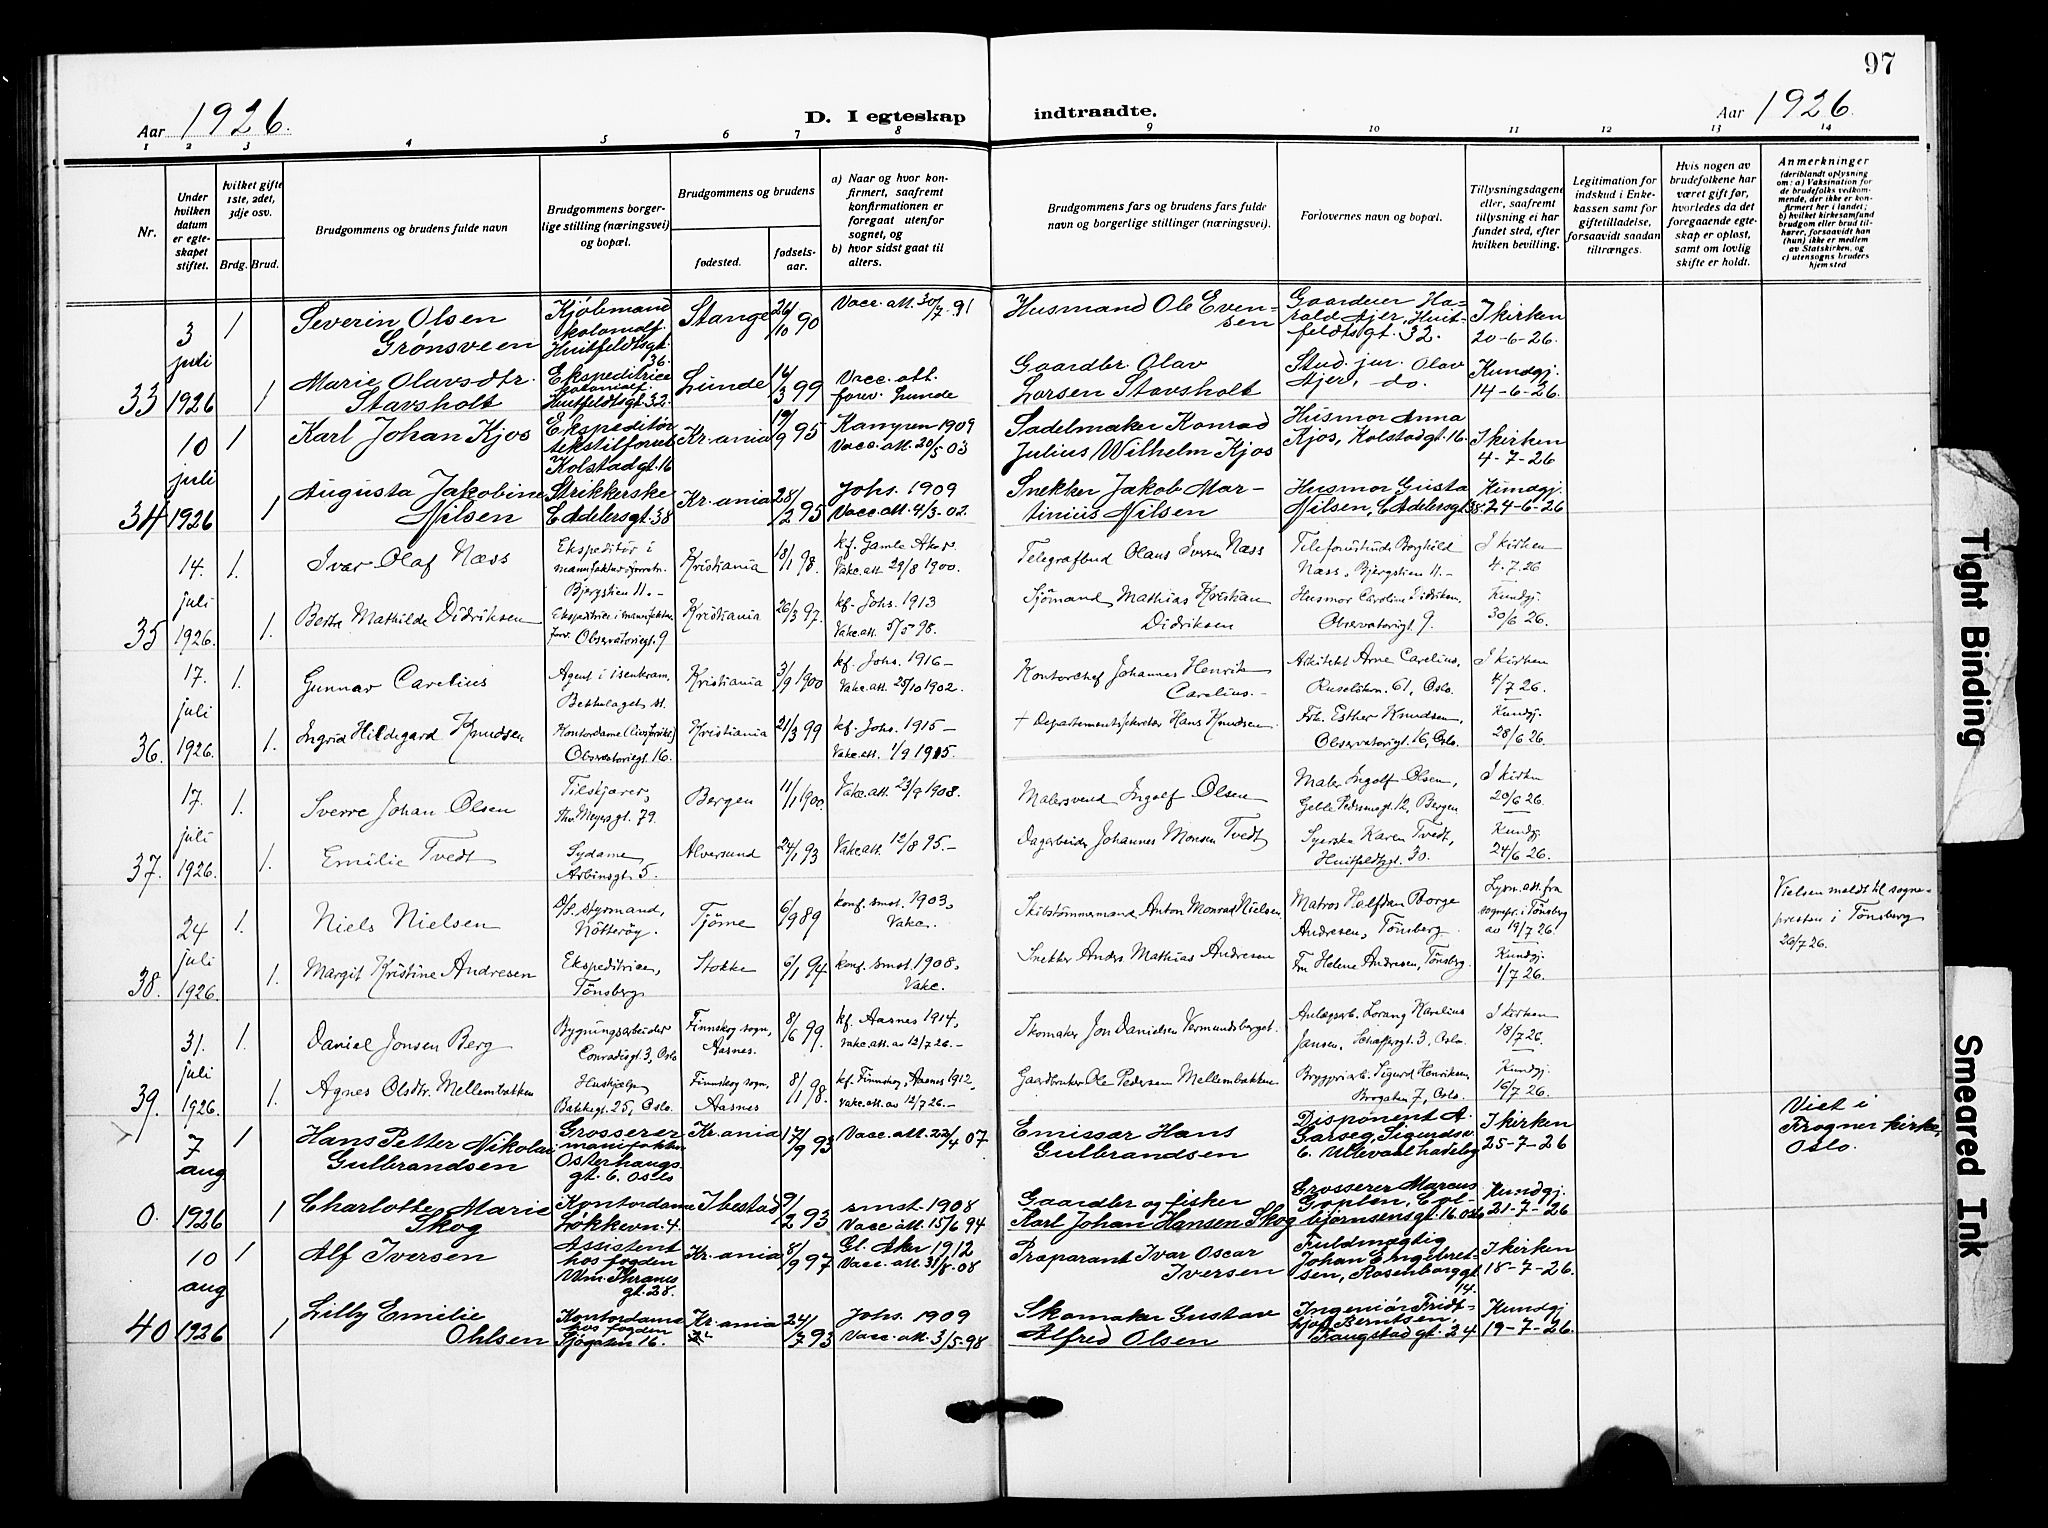 97
Aar 1926.
D. I egteskap
indtraadte.
Aar 1926.
1 2 3 4 5 6 7 8 9 10 11 12 13 14
Nr.
Under hvilken datum er egteskapet stiftet.
hvilket gifte 1ste, 2det, 3dje osv.
Brdg. Brud.
Brudgommens og brudens fulde navn
Brudgommens borgerlige stilling (næringsvei) og bopæl.
Brudgommens og brudens
fødested.
fødselsaar.
a) Naar og hvor konfirmert, saafremt konfirmationen er foregaat utenfor sognet, og
b) hvor sidst gaat til alters.
Brudgommens fars og brudens fars fulde navn og borgerlige stillinger (næringsvei).
Forlovernes navn og bopæl.
Tillysningsdagene eller, saafremt tillysning ei har fundet sted, efter hvilken bevilling.
Legitimation for indskud i Enkekassen samt for giftetilladelse, forsaavidt saadan tiltrænges.
Hvis nogen av brudefolkene har været gift før, hvorledes da det foregaaende egteskap er opløst, samt om lovlig skifte er holdt.
Anmerkninger
(deriblandt oplysning om: a) Vaksination for de brudefolks vedkommende, der ikke er konfirmert her i landet;
b) hvilket kirkesamfund brudgom eller brud tilhører, forsaavidt han (hun) ikke er medlem av Statskirken, og
c) utensogns bruders hjemsted
33 3 juli 1926
1 Severin Olsen Grønsveen
Kjøbmand kolonialf. Huitfeldtsgt. 36.
Stange 26/10 90
Vacc. att. 30/7-91
Husmand Ole Evensen
Gaardeier Harald Ajer, Huitfeldtsgt. 32.
I kirken 20-6-26.
1 Marie Olavsdtr. Stavsholt
Ekspeditrice kolonialf. Huitfeldtsgt. 32.
Lunde 14/3 99
Vacc. att. forev. Lunde
Gaardbr. Olav Larsen Stavsholt
Stud. jur. Olav Ajer, do.
Kundgj. 14-6-26.
34 10 juli 1926
1 Karl Johan Kjos
Ekspeditør tekstilforr. Kolstadgt. 16
Kr.ania 19/9 95
Kampen 1909 Vacc. att. 20/5-03
Sadelmaker Konrad Julius Wilhelm Kjos
Husmor Anna Kjos, Kolstadgt. 16.
I kirken 4-7-26
1 Augusta Jakobine Nilsen
Strikkerske C Adelersgt. 38
Kr.ania 28/2 95
Johs. 1909 Vacc. att. 4/3-02.
Snekker Jakob Martinius Nilsen
Husmor Gusta Nilsen, C Adelersgt. 38.
Kundgj. 24-6-26
35 14. juli 1926.
1. Ivar Olaf Næss
Ekspeditør i manufakturforretn. Bjergstien 11.-
Kristiania 18/1 98.
kf. Gamle Aker. Vakc. att. 29/8 1900.
Telegrafbud Olaus Iversen Næss
Telefonistinde Borghild Næss, Bjergstien 11.-
I kirken 4-7.26
1. Berta Mathilde Didriksen
Ekspeditrice i manufaktur forr. Observatoriegt. 9
Kristiania 26/3 97.
kf. Johs. 1913 Vakc. att. 5/5 98.
Sjömand Mathias Kristian Didriksen
Husmor Caroline Didriksen, Observatorigt. 9.
Kundgj. 30/6 26.
36. 17. juli 1926.
1. Gunnar Carelius
Agent i isenkram, Bekkelaget st.
Kristiania 3/9 1900
kf. Johs. 1916- Vakc. att. 25/10 1902.
Kontorchef Johannes Henrik Carelius.-
Arkitekt Arne Carelius, Ruseløkvn. 61, Oslo.
I kirken 4/7 26.
1. Ingrid Hildegard Knudsen
Kontordame (livsforsikr.) Observatoriegt. 16.
Kristiania 21/3 99
kf. Johs. 1915- Vakc. att. 1/9 1905.
+ Departementssekretær Hans Knudsen.
Frk. Esther Knudsen, Observatorigt. 16, Oslo.
Kundgj. 28/6 26.
37. 17. juli 1926.
1. Sverre Johan Olsen
Tilskjærer, Thv. Meyersgt. 79.
Bergen 11/1 1900.
Vakc. att. 23/9 1908.
Malersvend Ingolf Olsen
Maler Ingolf Olsen, Geble Pedersensgt. 12, Bergen
I kirken 20/6 26.
1. Emilie Tvedt
Sydame Arbinsgt. 5.
Alversund 24/1 93
Vakc. att. 12/8 95.-
Dagarbeider Johannes Monsen Tvedt
Syerske Karen Tvedt, Huitfeldtsgt. 30.
Kundgj. 24/6 26.
38. 24 juli 1926.
1. Niels Nielsen
styrmand, Nötteröy.
Tjöme 6/9 89
konf. smst. 1903, Vakc.
Skibstömmermand Anton Monrad Nielsen.
Matros Halfdan Borge Andresen, Tønsberg.
Lysn. att. fra sognepr. i Tønsberg av 19/7 26.
Vielsen meldt til sognepresten i Tønsberg 26/7 26.
1. Margit Kristine Andresen
Ekspeditrice, Tönsberg
Stokke 6/1 94
konf. smst. 1908, Vakc.
Snekker Anders Mathias Andresen
Fru Helene Andresen, Tønsberg.
Kundgj. 1/7 26.
39. 31. juli 1926.
1. Daniel Jonsen Berg
Bygningsarbeider Conradisgt. 3, Oslo
Finnskog sogn, Aasnes. 8/6 99.
kf. Aasnes 1914, Vakc. att. av 12/7 26.-
Skomaker Jon Danielsen Vermundsberget.
Anlægsarb. Lorang Karelius Jansen, Schaffersgt. 3, Oslo.
I kirken 18/7 26.
1. Agnes Olsdtr. Mellembakken
Hushjelp Bakkegt. 25, Oslo.
Finnskog sogn, Aasnes 8/1 98.
kf. Finnskog, Aasnes 1912, Vakc. att. av 12/7 26.-
Gaardbruker Ole Pedersen Mellembakken
Bryggeriarb. Sigurd Henriksen, Brogaten 7, Oslo.
Kundgj. 16/7 26.
0. 7 aug 1926
1 Hans Petter Nikolai Gulbrandsen
Grosserer i manufaktur Osterhausgt. 6. Oslo
Kr.ania 17/9 93
Vacc. att. 22/4 07
Emissær Hans Gulbrandsen
Disponent A. Garseg, Sigurdsv. 6. Ullevaal haveby
I kirken 25-7-26
Viet i Frogner kirke, Oslo.
1 Charlotte Marie Skog
Kontordame Løkkevn. 4.
Ibestad 9/2 93
smst. 1908 Vacc att 15/6 94
Gaardbr og fisker Karl Johan Hansen Skog
Grosserer Marcus Goplen, Colbjørnsensgt. 16 Oslo
Kundgj. 21-7-26
40 10 aug 1926
1 Alf Iversen
Assistent hos fogden Wm. Thranesgt. 28.
Kr.ania 8/9 97
Gl. Aker 1912 Vacc. att. 31/8-08
Præparant Ivar Oscar Iversen
Fuldmægtig Johan Engebretsen, Rosenborggt. 14.
I kirken 18-7-26.
1 Lilly Emilie Ohlsen
Kontordame hos fogden Sjøgaten 16.
Kr.ania 24/7 93
Johs. 1909 Vacc. att. 3/5-98
Skomaker Gustav Alfred Olsen
Ingeniør Fridtjof Berntsen, Haugstadgt. 24
Kundgj 19-7-26.
Tight Binding
Smeared Ink